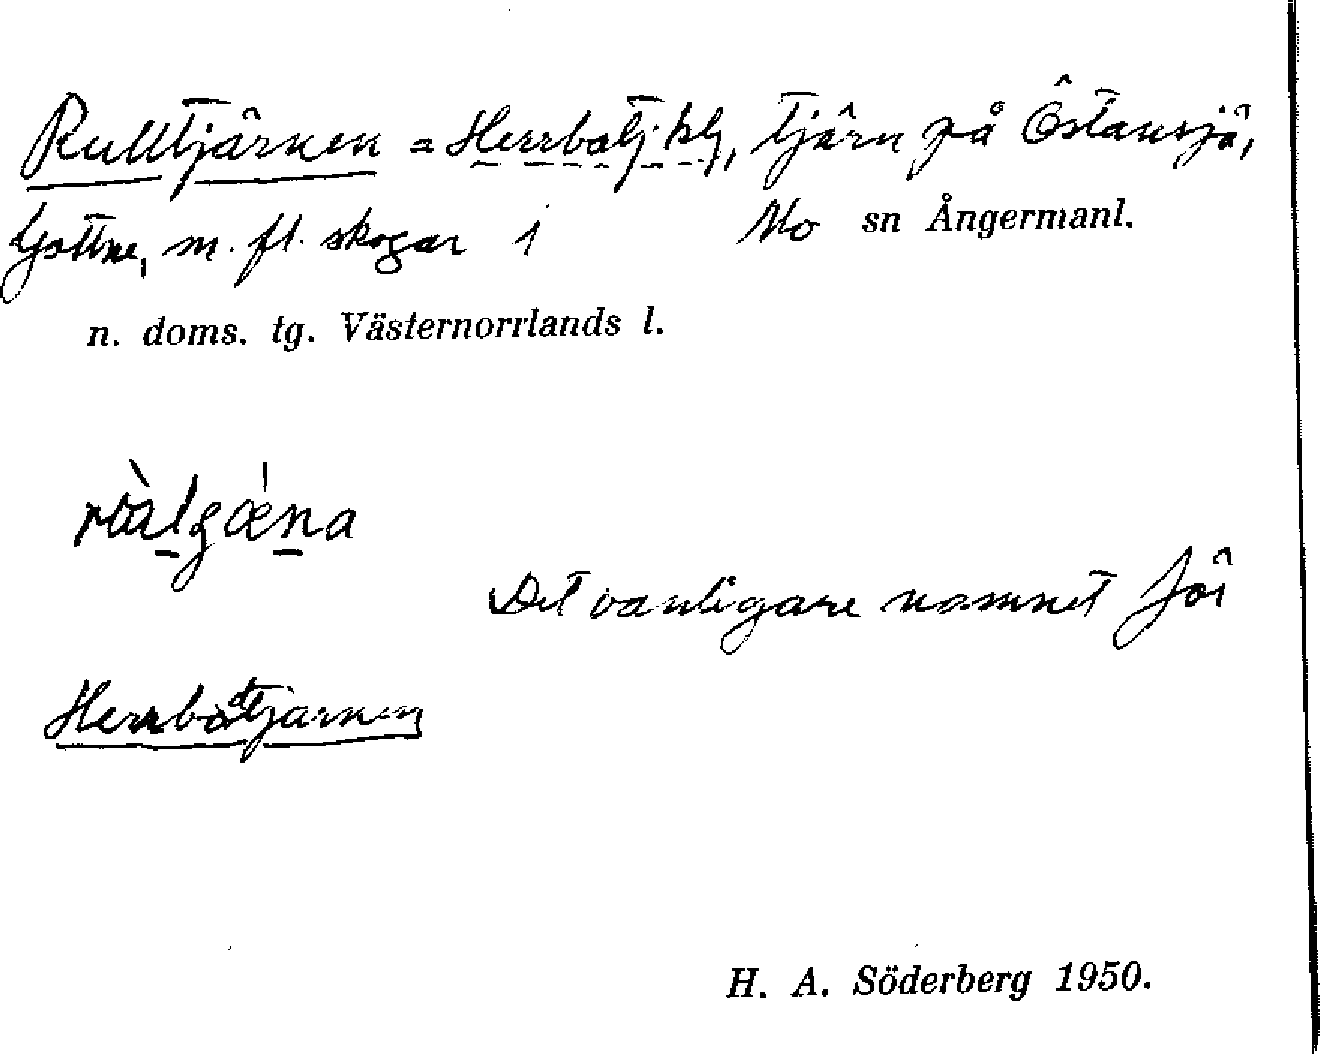 Rulltjärnen = Herrbatj. kbg, tjärn på Östansjö,
Gottne, m. fl. skogar i Mo sn Ångermanl.
n. doms. tg. Västernorrlands l.
Det vanligare namnet för
Herrbatjärnen
H. A. Söderberg 1950.